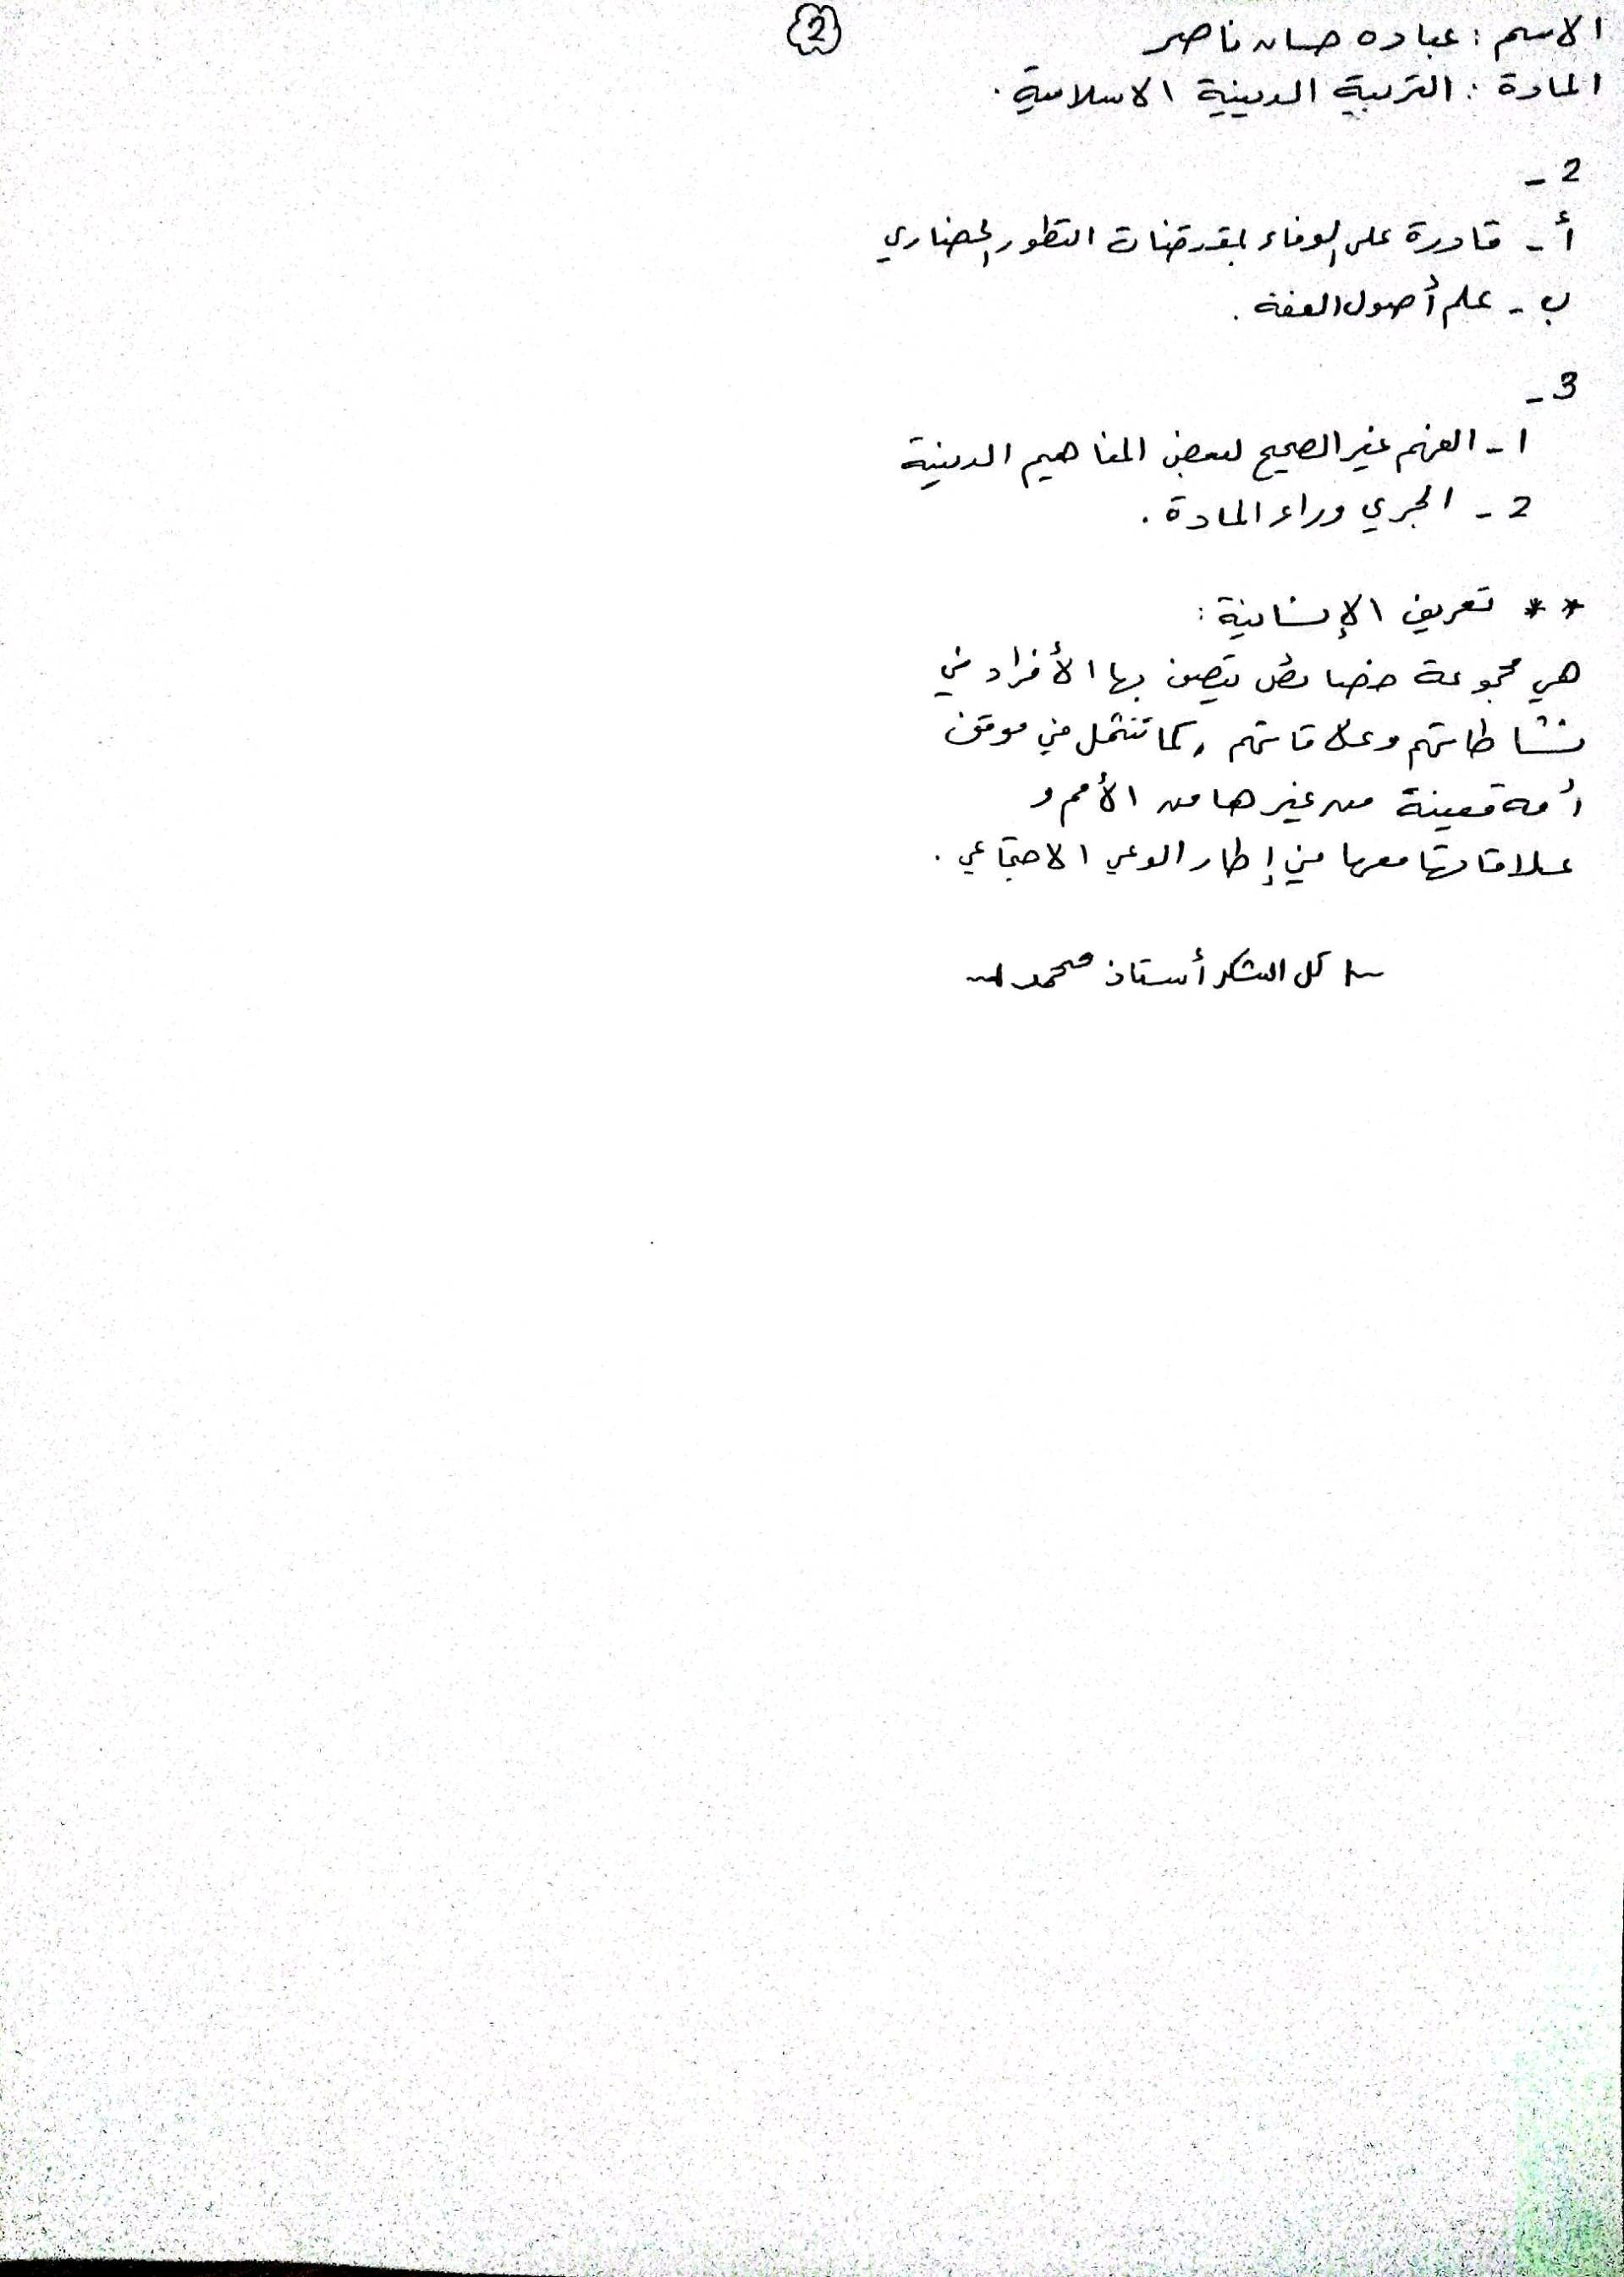 ②
الاسم : عباده حسان ناصر
المادة : التربية الدينية الاسلامية .
2 -
أ - قادرة على الوفاء بمقتضيات التطور الحضاري
ب - علم أصول الفقه .
3 -
1 - الفهم غير الصحيح لبعض المفاهيم الدينية
2 - الجري وراء المادة .
** تعريف الإنسانية :
هي مجموعة خصائص يتصف بها الأفراد في
نشاطاتهم وعلاقاتهم , كما تتمثل في موقف
أمة معينة من غيرها من الأمم و
علاقاتها معها في إطار الوعي الاجتماعي .
كل الشكر أستاذ محمد